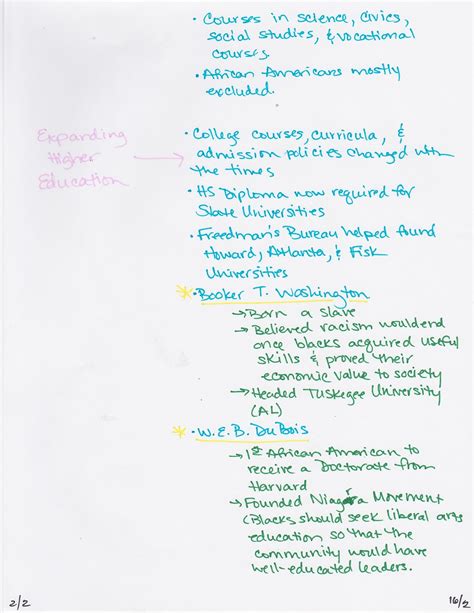 • Courses in science, civics,
social studies, & vocational
courses.
• African Americans mostly
excluded.
Expanding
Higher
Education
• College courses, curricula, &
admission policies changed with
the times
• HS Diploma now required for
State Universities
• Freedman's Bureau helped found
Howard, Atlanta, & Fisk
Universities
* • Booker T. Washington
→ Born a slave
→ Believed racism would end
once blacks acquired useful
skills & proved their
economic value to society
→ Headed Tuskegee University
(AL)
* • W.E.B. DuBois
→ 1st African American to
receive a Doctorate from
Harvard
→ Founded Niagara Movement
(Blacks should seek liberal arts
education so that the
community would have
well-educated leaders.
2/2